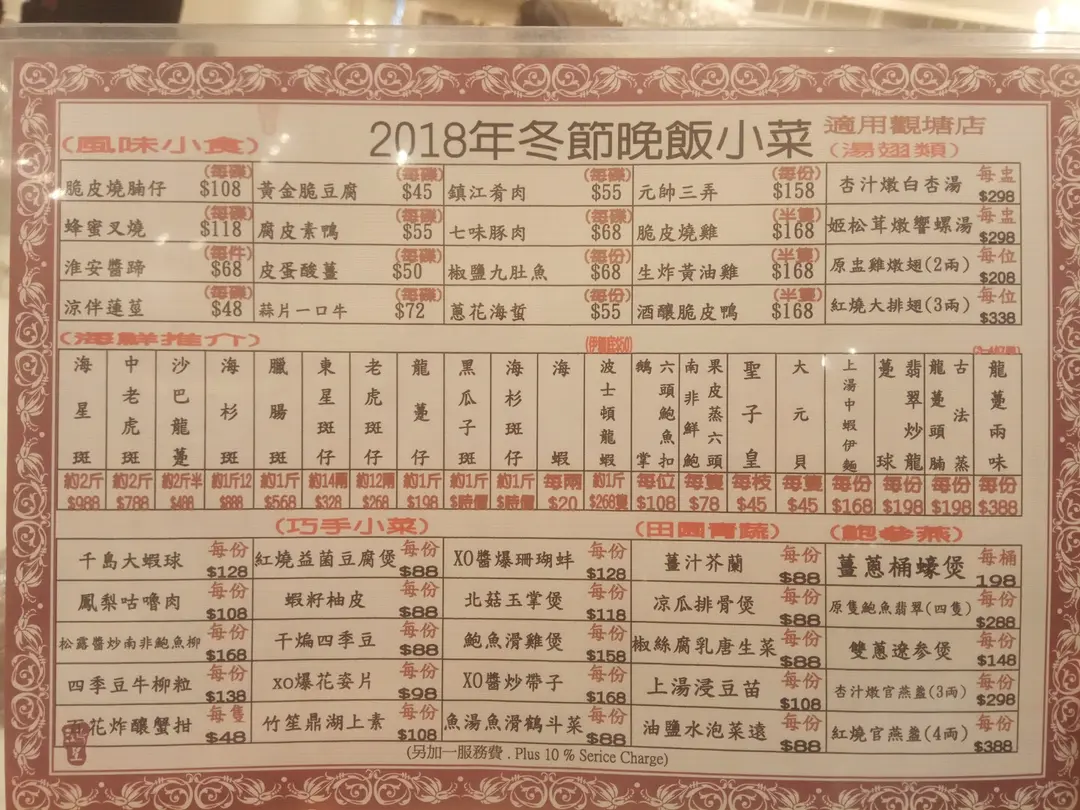 2018年冬節晚飯小菜
適用觀塘店
(風味小食)
(湯翅類)
脆皮燒腩仔 (每碟) $108 黃金脆豆腐 (每碟) $45 鎮江肴肉 (每碟) $55 元帥三弄 (每份) $158 杏汁燉白杏湯 每盅 $298
蜂蜜叉燒 (每碟) $118 腐皮素鴨 (每碟) $55 七味豚肉 (每碟) $68 脆皮燒雞 (半隻) $168 姬松茸燉響螺湯 每盅 $298
淮安醬蹄 (每件) $68 皮蛋酸薑 (每碟) $50 椒鹽九肚魚 (每份) $68 生炸黃油雞 (半隻) $168 原盅雞燉翅(2兩) 每位 $208
涼伴蓮莖 (每碟) $48 蒜片一口牛 (每碟) $72 蔥花海蜇 (每份) $55 酒釀脆皮鴨 (半隻) $168 紅燒大排翅(3兩) 每位 $338
(海鮮推介)
(伊麵底$50)
海星斑 約2斤 $988
中老虎斑 約2斤 $788
沙巴龍躉 約2斤半 $488
海杉斑 約1斤12 $888
臘腸斑 約1斤 $568
東星斑仔 約14兩 $328
老虎斑仔 約12兩 $268
龍躉仔 約1斤 $198
黑瓜子斑 約1斤 $時價
海杉斑仔 約1斤 $時價
海蝦 每兩 $20
波士頓龍蝦 約1斤 $268隻
六頭鮑魚扣鵝掌 每位 $108
果皮蒸六頭南非鮮鮑 每隻 $78
聖子皇 每枝 $45
大元貝 每隻 $45
上湯中蝦伊麵 每份 $168
翡翠炒龍躉球 每份 $198
古法蒸龍躉頭腩 每份 $198
龍躉兩味 每份 $388
(巧手小菜)
(田園青蔬)
(鮑參燕)
千島大蝦球 每份 $128 紅燒益菌豆腐煲 每份 $88 XO醬爆珊瑚蚌 每份 $128 薑汁芥蘭 每份 $88 薑蔥桶蠔煲 每桶 198
鳳梨咕嚕肉 每份 $108 蝦籽柚皮 每份 $88 北菇玉掌煲 每份 $118 凉瓜排骨煲 每份 $88 原隻鮑魚翡翠(四隻) 每份 $288
松露醬炒南非鮑魚柳 每份 $168 干煸四季豆 每份 $88 鮑魚滑雞煲 每份 $158 椒絲腐乳唐生菜 每份 $88 雙蔥遼參煲 每份 $148
四季豆牛柳粒 每份 $138 XO爆花姿片 每份 $98 XO醬炒帶子 每份 $168 上湯浸豆苗 每份 $108 杏汁燉官燕盞(3兩) 每份 $298
百花炸釀蟹拑 每隻 $48 竹笙鼎湖上素 每份 $108 魚湯魚滑鶴斗菜 每份 $88 油鹽水泡菜遠 每份 $88 紅燒官燕盞(4兩) 每份 $388
(另加一服務費 . Plus 10 % Serice Charge)